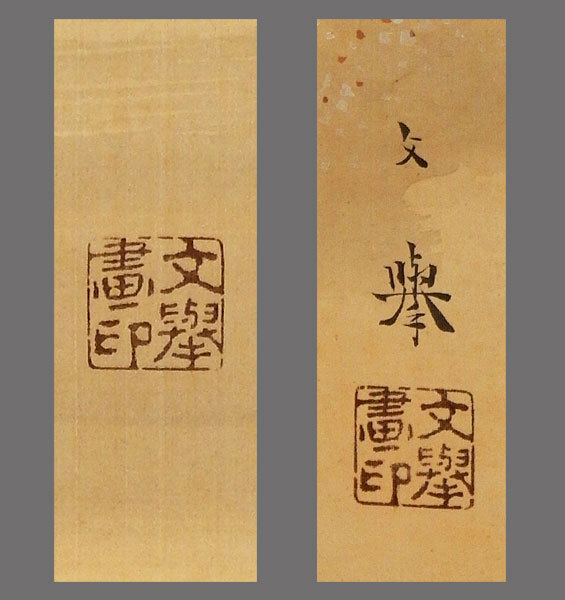 文擧
畫印
文擧
文擧
畫印